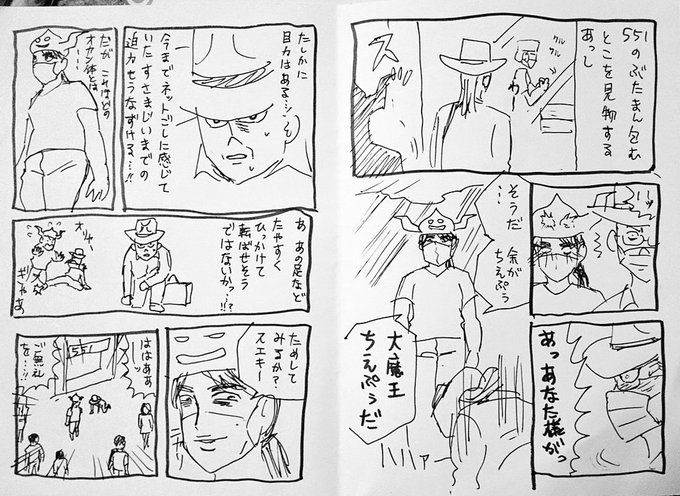 551のぶたまん包む
とこを見物する
あっし
クルクル
クルクル
ス
ハッ
あっあなた様がっ
そうだ 余が
ちえぷぅ
…
大魔王
ちえぷぅだ
ハハァー
たしかに
目力はある…!
今までネットごしに感じて
いたすさまじいまでの
迫力もうなずける…!!
だが これほどの
オカン体とは
…
あ あの足など
たやすく
ひっかけて
転ばせそう
ではないかっ…!?
オリャー
ギャあ
ためして
みるか?
スエキー
551
ははああ
ーッ
ご無礼
を…!!